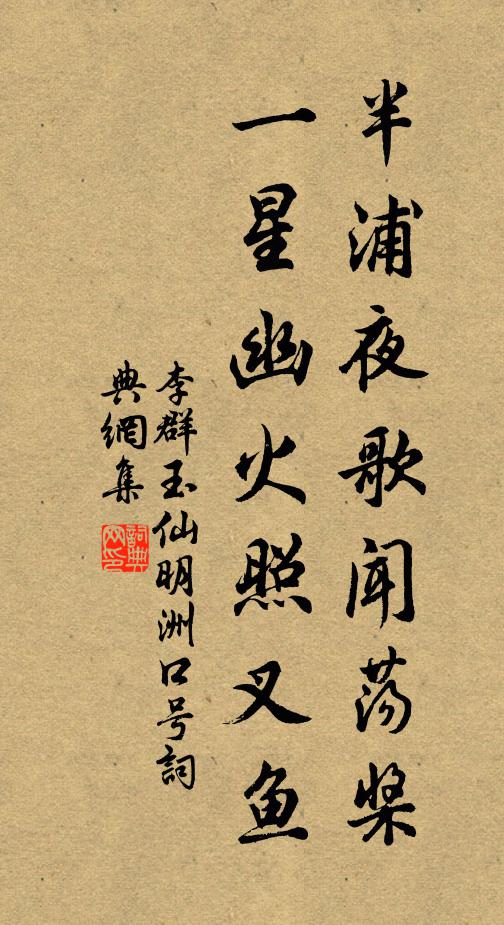 半浦夜歌闻荡桨
一星幽火照叉鱼
李群玉仙明洲口号詞
典網集
詞典
网印